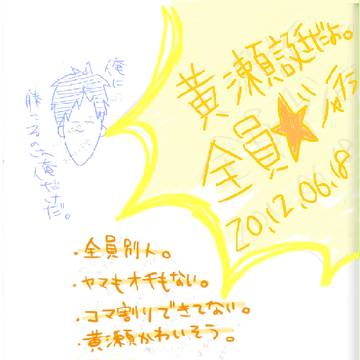 黄瀬誕だよ。
全員★シュウゴウ
2012.06.18
俺に
勝てるのは俺だけだ。
・全員別人。
・ヤマもオチもない。
・コマ割りできてない。
・黄瀬かわいそう。